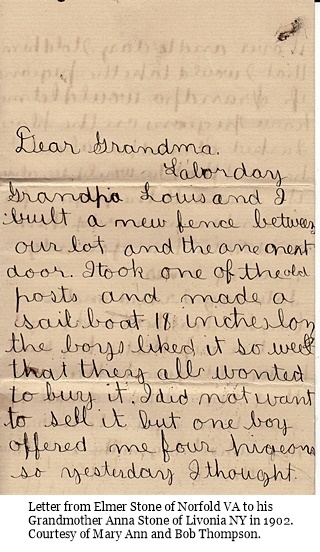 Dear Grandma.
Labor day
Grandpa Louis and I
built a new fence between
our lot and the one next
door. I took one of the old
posts and made a
sail boat 18 inches long
the boys liked it so well
that they all wanted
to buy it. I did not want
to sell it but one boy
offered me four pigeons
so yesterday I thought.
Letter from Elmer Stone of Norfold VA to his
Grandmother Anna Stone of Livonia NY in 1902.
Courtesy of Mary Ann and Bob Thompson.